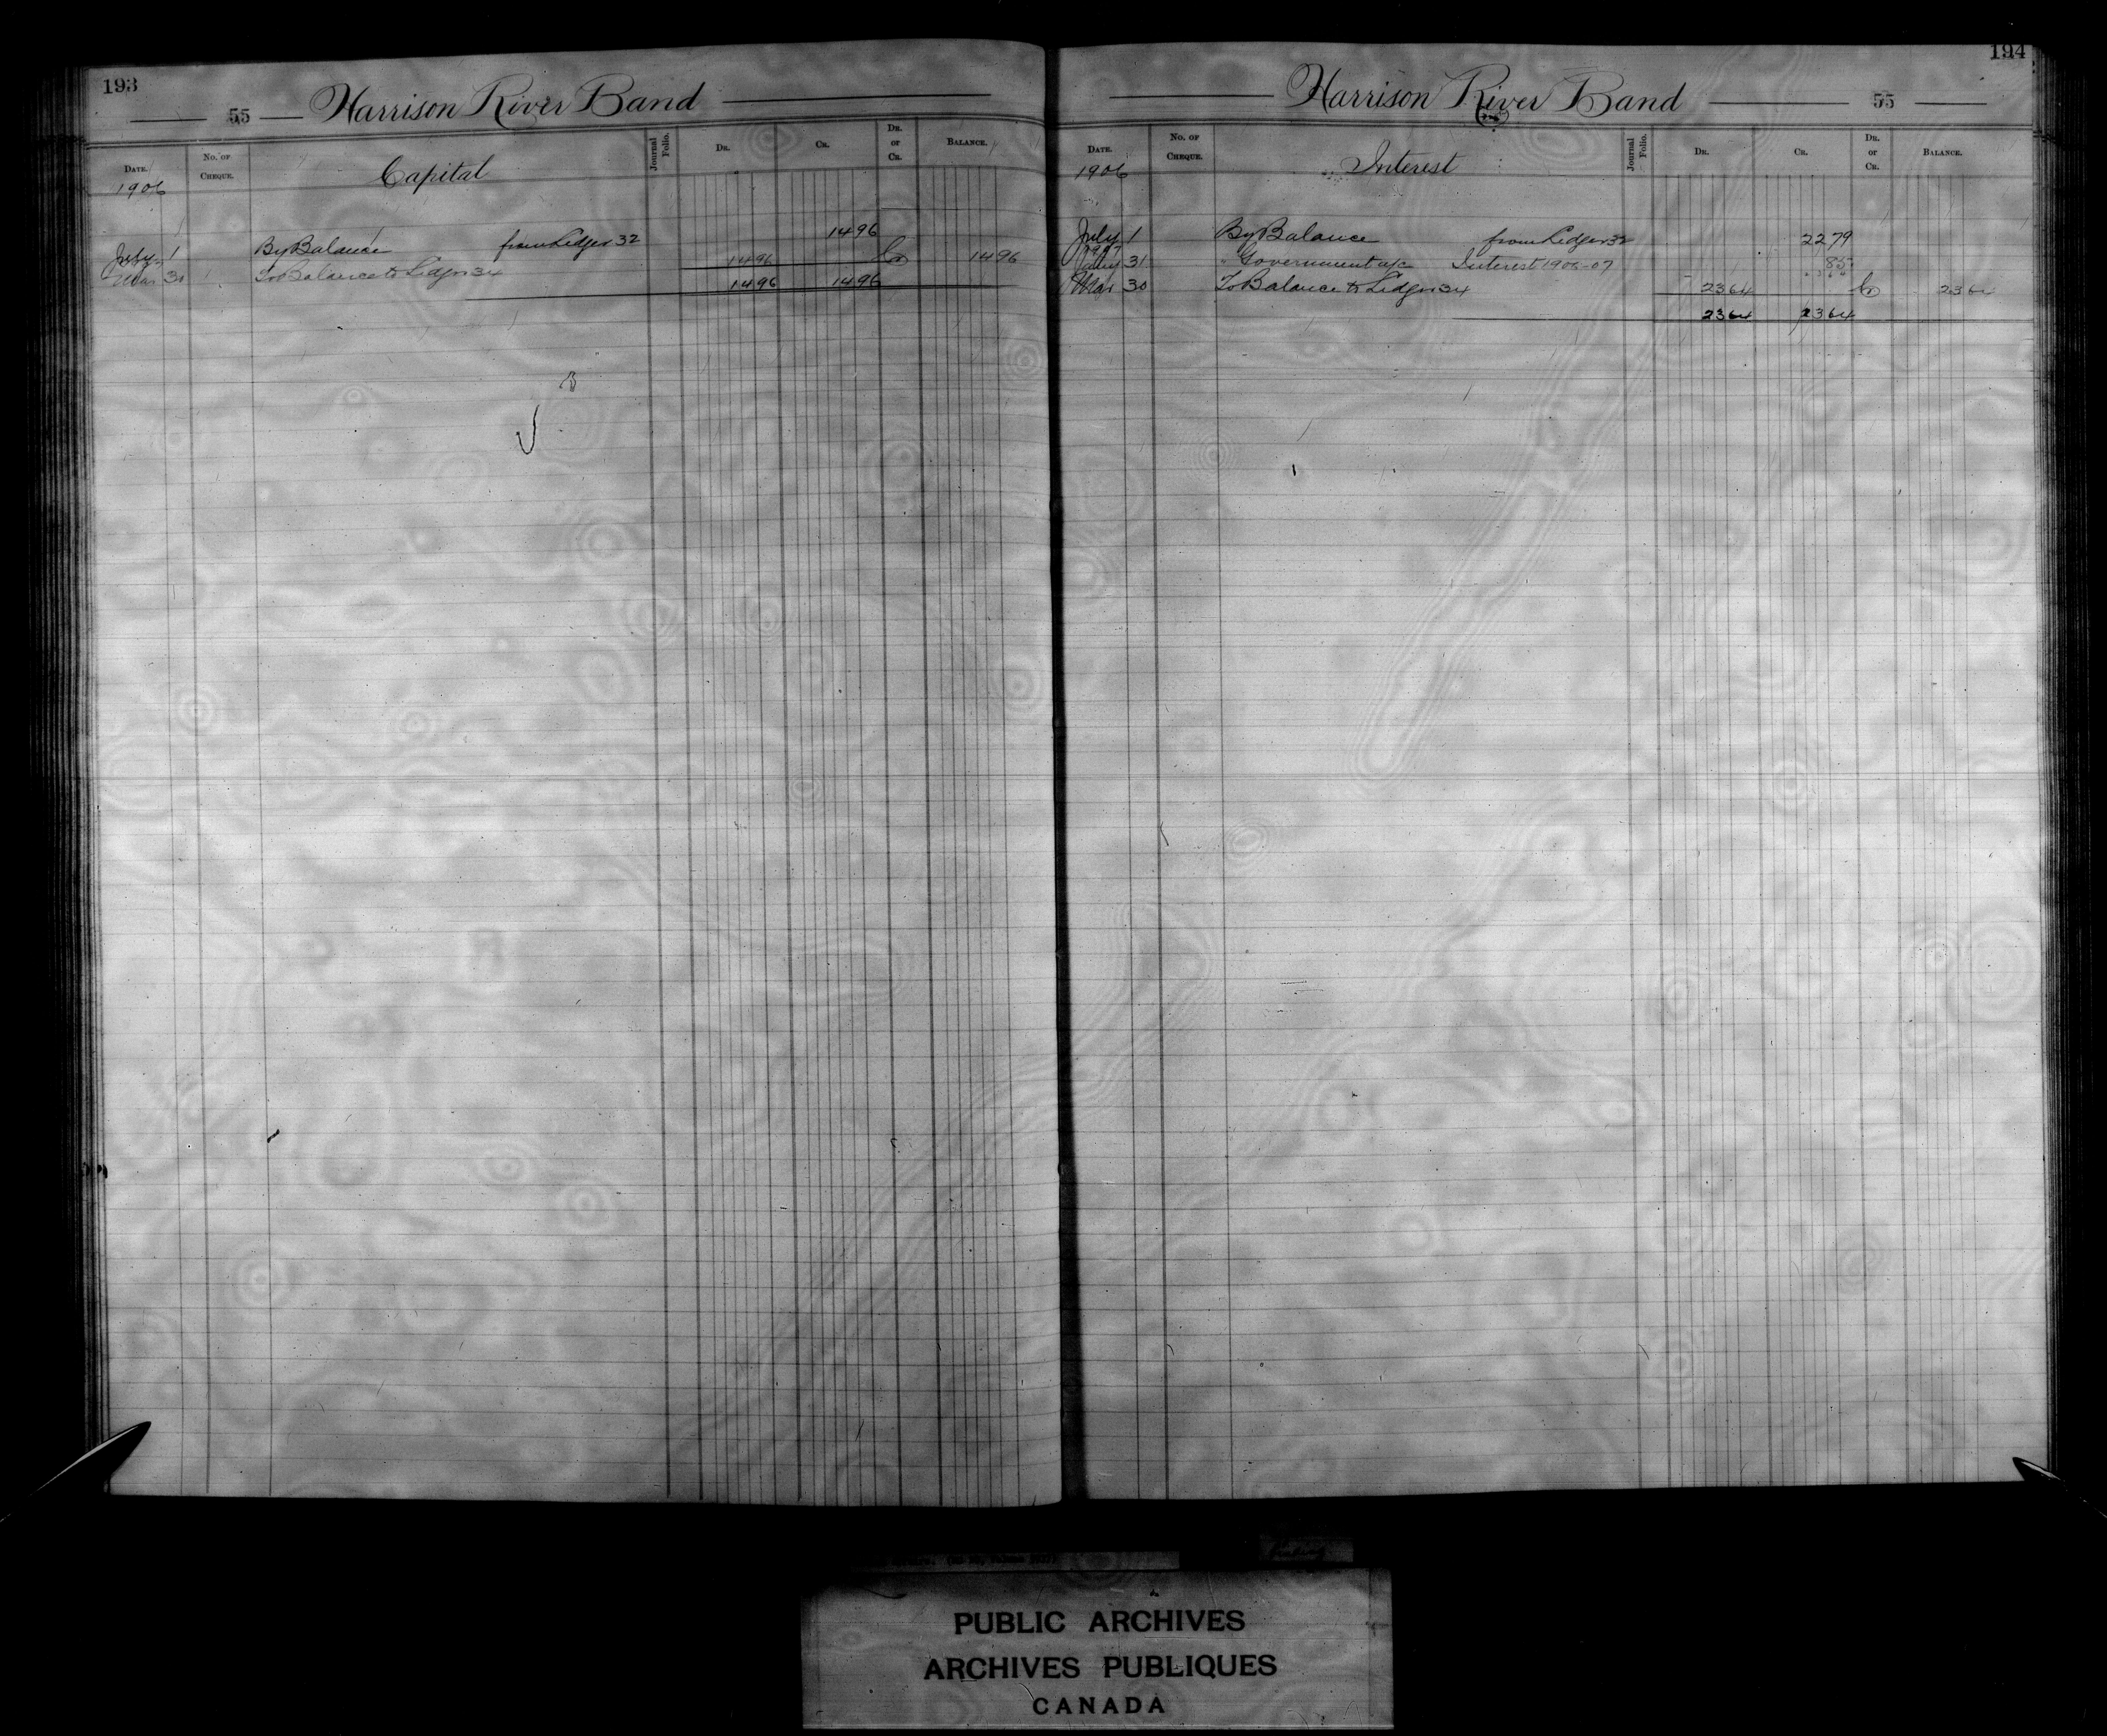 193
55 Harrison River Band
DATE. No. OF CHEQUE. Capital Journal Folio. DR. CR. DR. or CR. BALANCE.
1906
July 1 By Balance from Ledger 32 1496
Mar 30 To Balance to Ledger 34 1496 Cr 1496
1496 1496
194
Harrison River Band 55
DATE. No. OF CHEQUE. Interest Journal Folio. DR. CR. DR. or CR. BALANCE.
1906
July 1 By Balance from Ledger 32 2279
1907
Jany 31 " Government a/c Interest 1906-07 85
Mar 30 To Balance to Ledger 34 2364 Cr 2364
2364 2364
PUBLIC ARCHIVES
ARCHIVES PUBLIQUES
CANADA